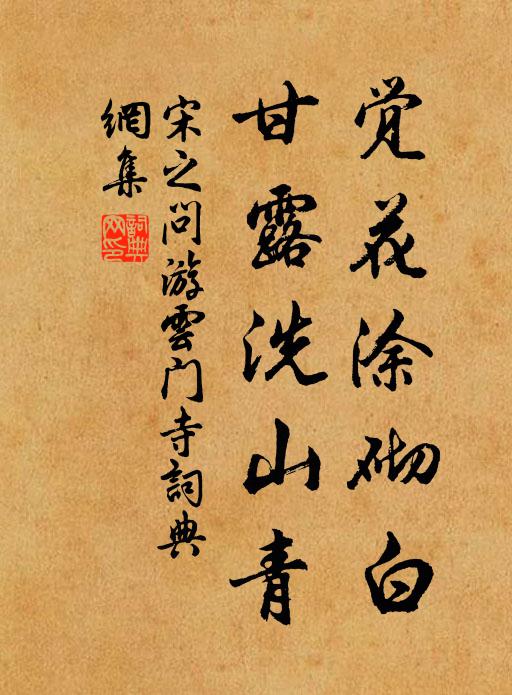 觉花涂砌白
甘露洗山青
宋之问游雲门寺詞典
網集
詞典
网印